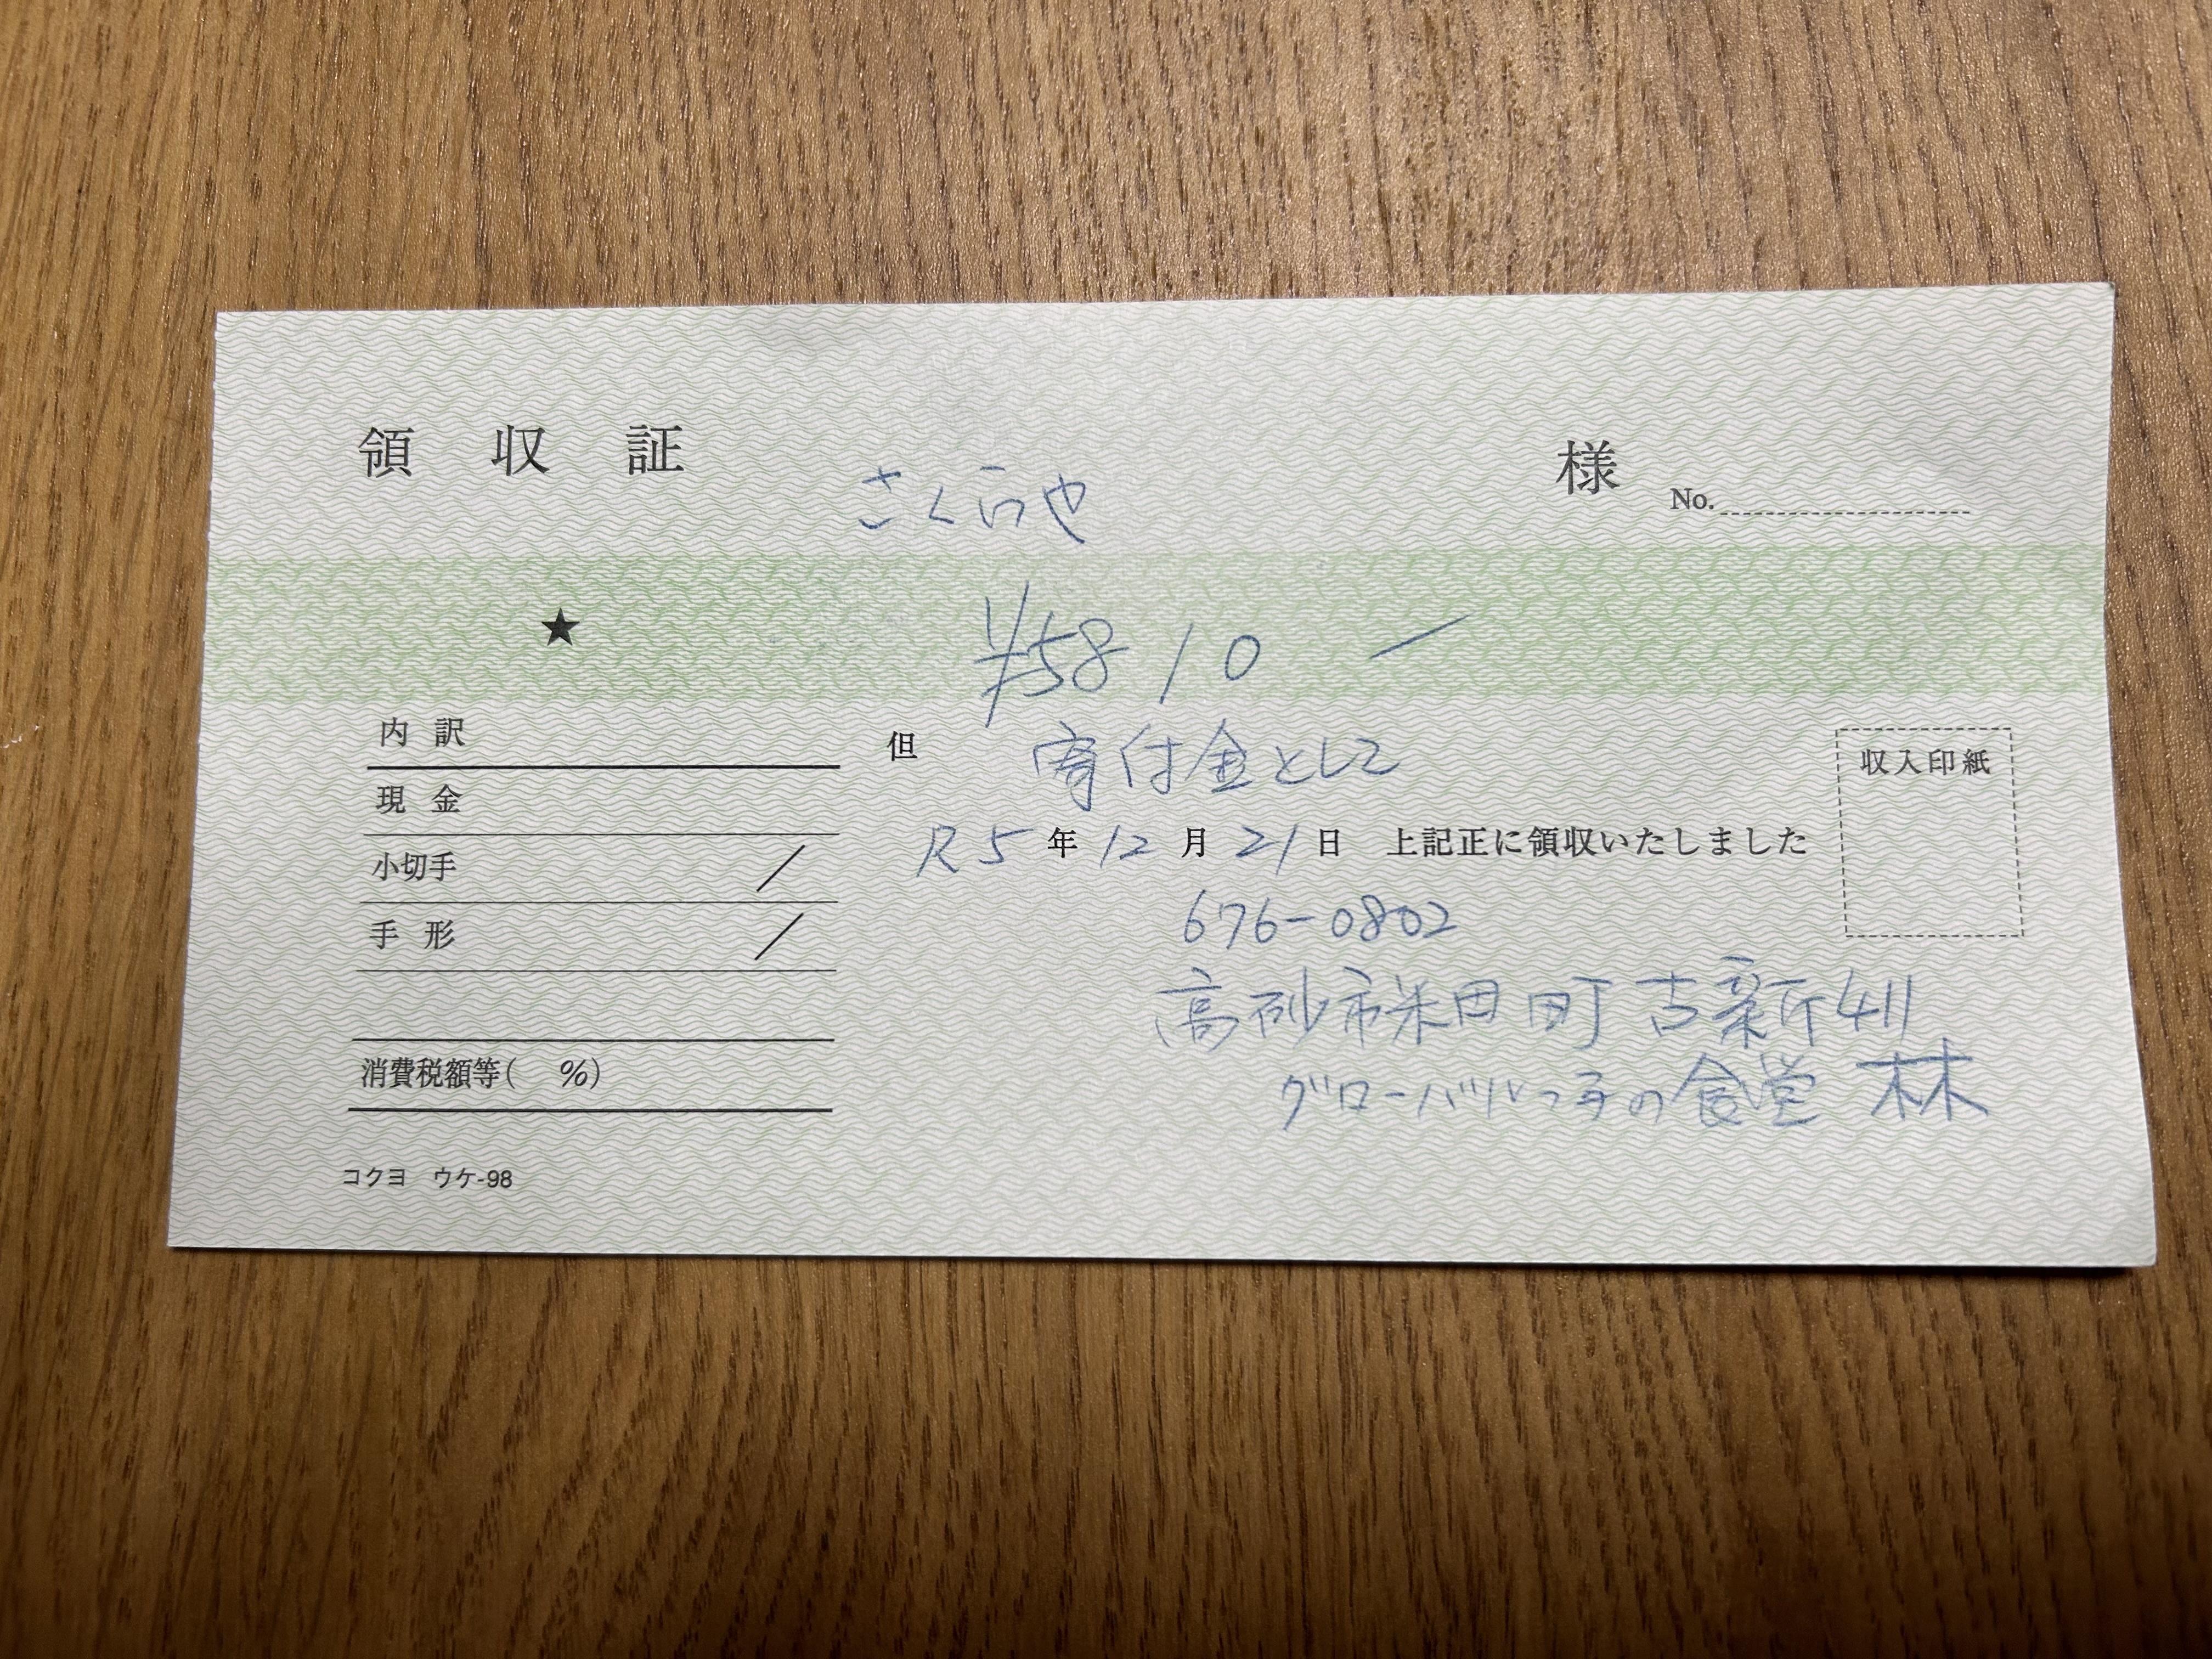 領収証 さくらや 様 No.
★ ¥5810 ー
内訳
現金
小切手 /
手形 /
消費税額等( %)
コクヨ ウケ-98
但 寄付金として
R5年12月21日 上記正に領収いたしました
収入印紙
676-0802
高砂市米田町古新411
グローバルっ子の食堂 林